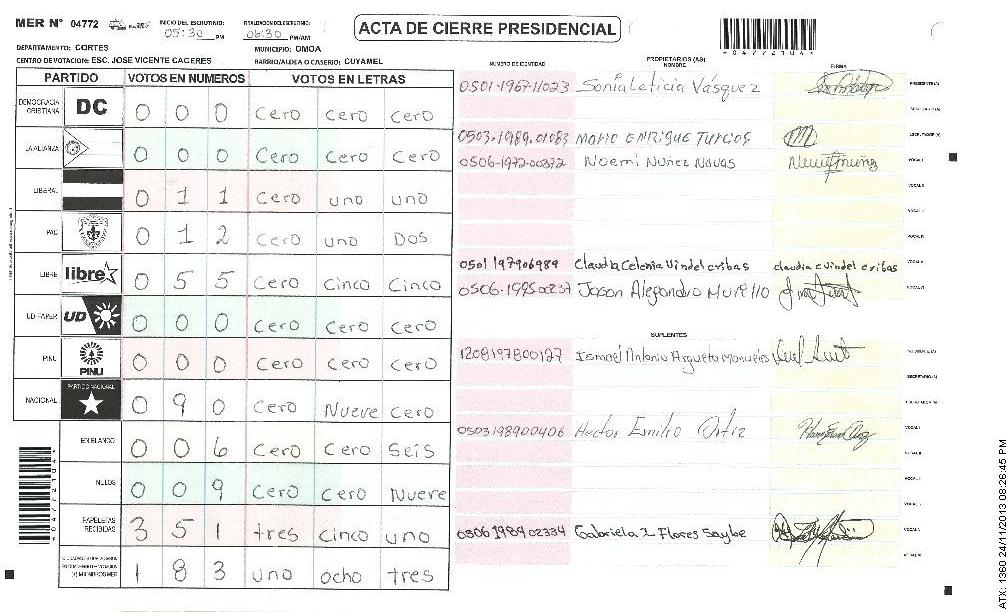 MER N° 04772 INICIO DEL ESCRUTINIO: 05:30 PM 06:30 PM/AM ACTA DE CIERRE PRESIDENCIAL
DEPARTAMENTO: CORTES MUNICIPIO: OMOA
CENTRO DE VOTACION: ESC. JOSE VICENTE CACERES BARRIO/ALDEA O CASERIO: CUYAMEL
PARTIDO VOTOS EN NUMEROS VOTOS EN LETRAS
DEMOCRACIA CRISTIANA DC 0 0 0 Cero Cero Cero
LA ALIANZA 0 0 0 Cero Cero Cero
LIBERAL 0 1 1 Cero uno uno
PAC 0 1 2 Cero uno Dos
LIBRE libre 0 5 5 Cero Cinco Cinco
UD-FAPER UD 0 0 0 Cero Cero Cero
PINU PINU 0 0 0 Cero Cero Cero
NACIONAL PARTIDO NACIONAL 0 9 0 Cero Nueve Cero
EN BLANCO 0 0 6 Cero Cero Seis
NULOS 0 0 9 Cero Cero Nueve
PAPELETAS RECIBIDAS 3 5 1 tres cinco uno
1 8 3 uno ocho tres
NUMERO DE IDENTIDAD PROPIETARIOS (AS) NOMBRE FIRMA
0501-1967-11023 Sonia Leticia Vásquez PRESIDENTE(A)
SECRETARIO(A)
0503-1989-01083 MARIO ENRIQUE TURCIOS ESCRUTADOR(A)
0506-1972-00372 Noemi Nuñez Navas VOCAL I
VOCAL II
VOCAL III
VOCAL IV
0501197906989 Claudia Celenia Vindel cribas claudia c Vindel cribas VOCAL V
0506-1995-00237 Jason Alejandro Murillo VOCAL VI
SUPLENTES
1208197800127 Ismael Antonio Argueta Manueles
SECRETARIO(A)
ESCRUTADOR(A)
0503198900406 Hector Emilio Ortiz VOCAL I
VOCAL II
0506198902334 Gabriela I Flores Saybe
04772104
04772104
ATX: 1360 24/11/2013 08:26:45 PM